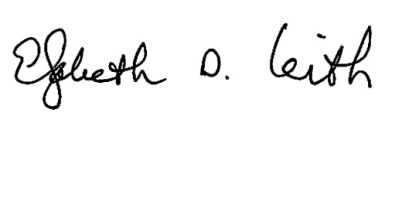 Elizbeth D. Leith